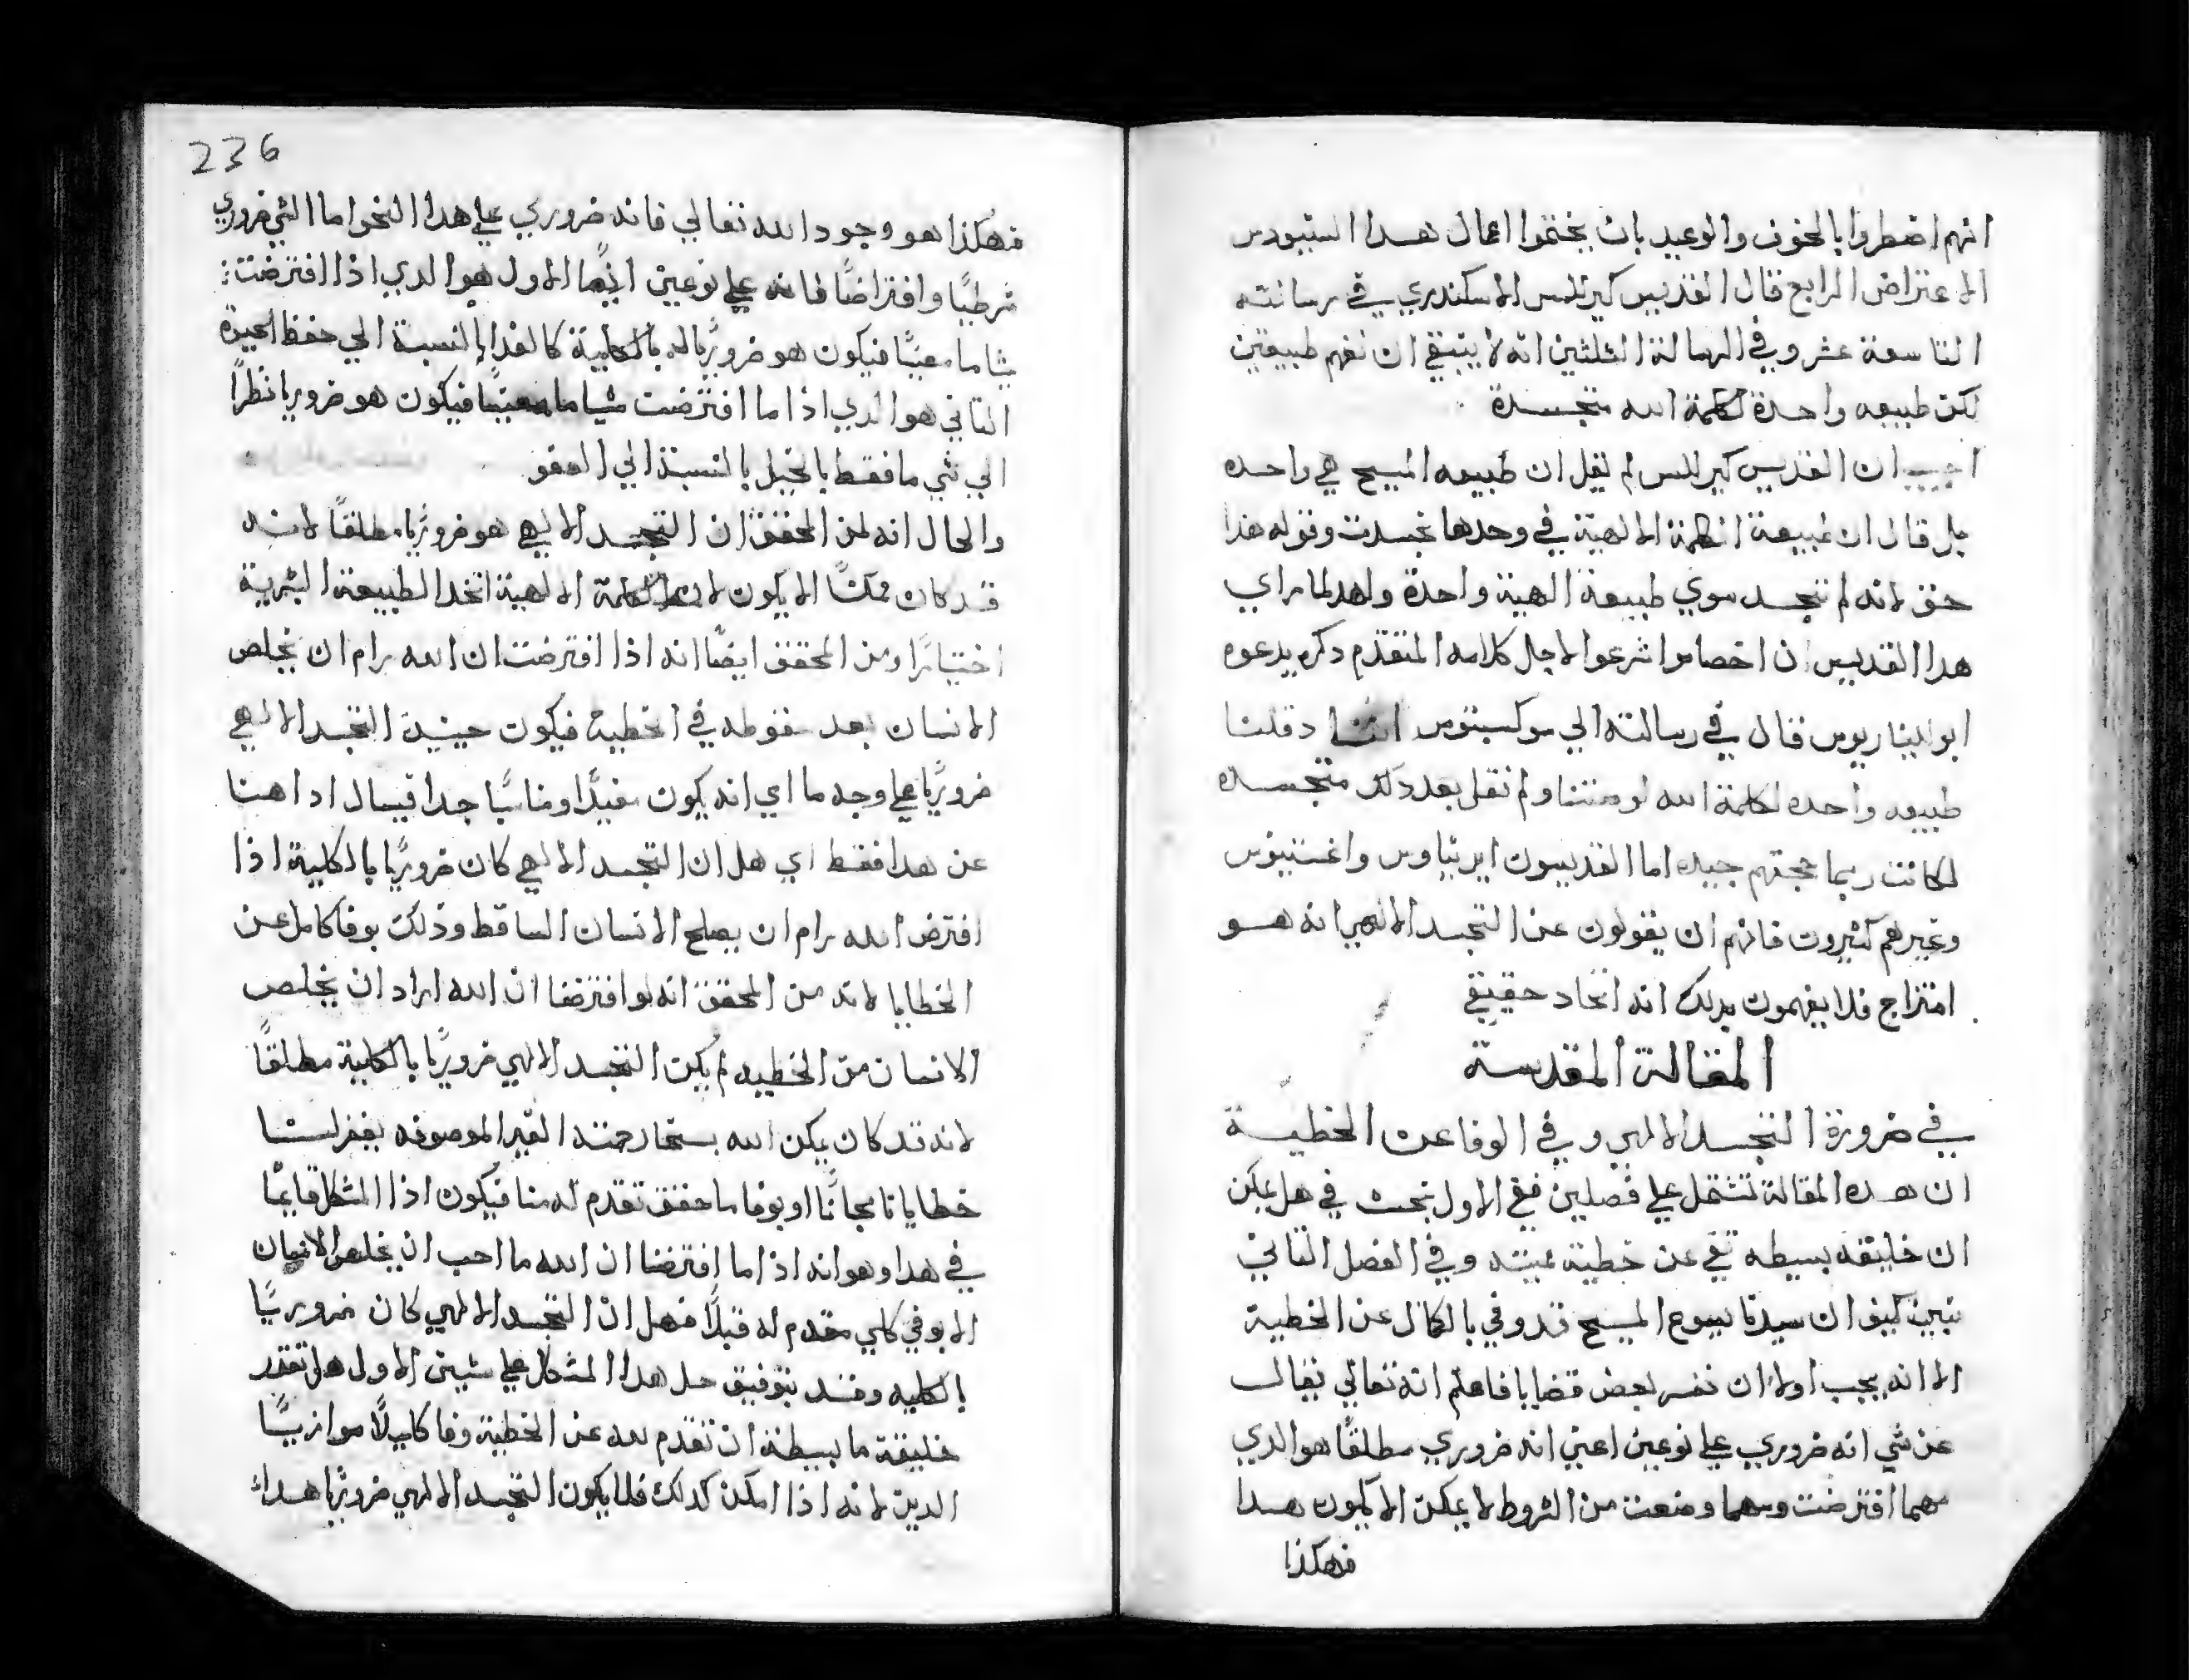 انهم اضطروا بالخوف والوعيد بان يختموا اعمال هدا السنودس
الاعتراض الرابع قال القديس كيرللس الاسكندري في رسالته
التاسعة عشر وفي الرسالة الثلثين انه لا ينبغي ان نفهم طبيعتين
لكن طبيعه واحدة لكلمة الله متجسدة
اجيب ان القديس كيرللس لم يقل ان طبيعه المسيح هي واحده
بل قال ان طبيعة الكلمة الالهية في وحدها تجسدت وقوله هذا
حق لانه لم تتجسد سوي طبيعة الهية واحدة ولهدا لما راي
هدا القديس ان اخصاموا شرعوا لاجل كلامه المتقدم دكره يدعوه
ابوليناريوس قال في رسالته الي سوكسينوس اننا دقلنا
طبيعه واحده لكلمة الله لو صمتنا ولم نقل بعد دلك متجسده
لكانت ربما حجتهم جيده اما القديسون ايريناوس واغستينوس
وغيرهم كثيرون فانهم ان يقولون عن التجسد الالهي انه هو
امتزاج فلا يفهمون بدلك انه اتحاد حقيقي
المقالة المقدسة
في ضرورة التجسد الالهي وفي الوفا عن الخطية
ان هده المقالة تشتمل علي فصلين ففي الاول نبحث في هل يمكن
ان خليقه بسيطه تفي عن خطية مميته وفي الفصل الثاني
نبين كيف ان سيدنا يسوع المسيح قد وفي بالكمال عن الخطية
الا انه يجب اولا ان نفسر بعض قضايا فاعلم انه تعالي يقال
عن شي انه ضروري علي نوعين اعني انه ضروري مطلقًا هو الدي
مهما افترضت ومهما وضعت من الشروط لا يمكن الا يكون هدا
فهكذا
236
فهكذا هو وجود الله تعالي فانه ضروري علي هدا النحو اما الشي ضروري
شرطيًا وافتراضًا فانه علي نوعين ايضًا الاول هو الدي اذا افترضت
شيا ما معينًا فيكون هو ضروريًا له بالكلية كالغذا بالنسبة الي حفظ الحيوة
الثاني هو الدي اذا ما افترضت شيا ما معينًا فيكون هو ضروريا نظرًا
الي شي ما فقط بالخيل بالنسبة الي العفو
والحال انه لمن المحقق ان التجسد الالهي هو ضروريًا مطلقًا لانه
قد كان ممكنًا الا يكون لان الكلمة الالهية اتخد الطبيعة البشرية
اختيارًا ومن المحقق ايضًا انه اذا افترضت ان الله رام ان يخلص
الانسان بعد سقوطه في الخطية فيكون حينيدٍ التجسد الالهي
ضروريًا علي وجه ما اي انه يكون مفيدًا ومناسبًا جدا فيسال ادا هنا
عن هدا فقط اي هل ان التجسد الالهي كان ضروريًا بالكلية اذا
افترض الله رام ان يصلح الانسان الساقط وذلك بوفا كامل عن
الخطايا لانه من المحقق انه لو افترضنا ان الله اراد ان يخلص
الانسان من الخطيه لم يكن التجسد الالهي ضروريًا بالكلية مطلقًا
لانه قد كان يمكن الله بسخا رحمته الغير الموصوفه يغفر لنا
خطايانا مجانًا او بوفا ما حقق تقدم له منا فيكون اذا المشكل قايمًا
في هدا وهو انه اذا ما افترضنا ان الله ما احب ان يخلص الانسان
الا بوفي كلي مقدم له قبلًا فهل ان التجسد الالهي كان ضروريًا
بالكليه وقد يتوفيق حل هدا المشكل علي شيين الاول هل تقدر
خليقة ما بسيطة ان تقدم لله عن الخطية وفا كاملًا موازيًا
الدين لانه اذا امكن كدلك فلا يكون التجسد الالهي ضروريًا هدا